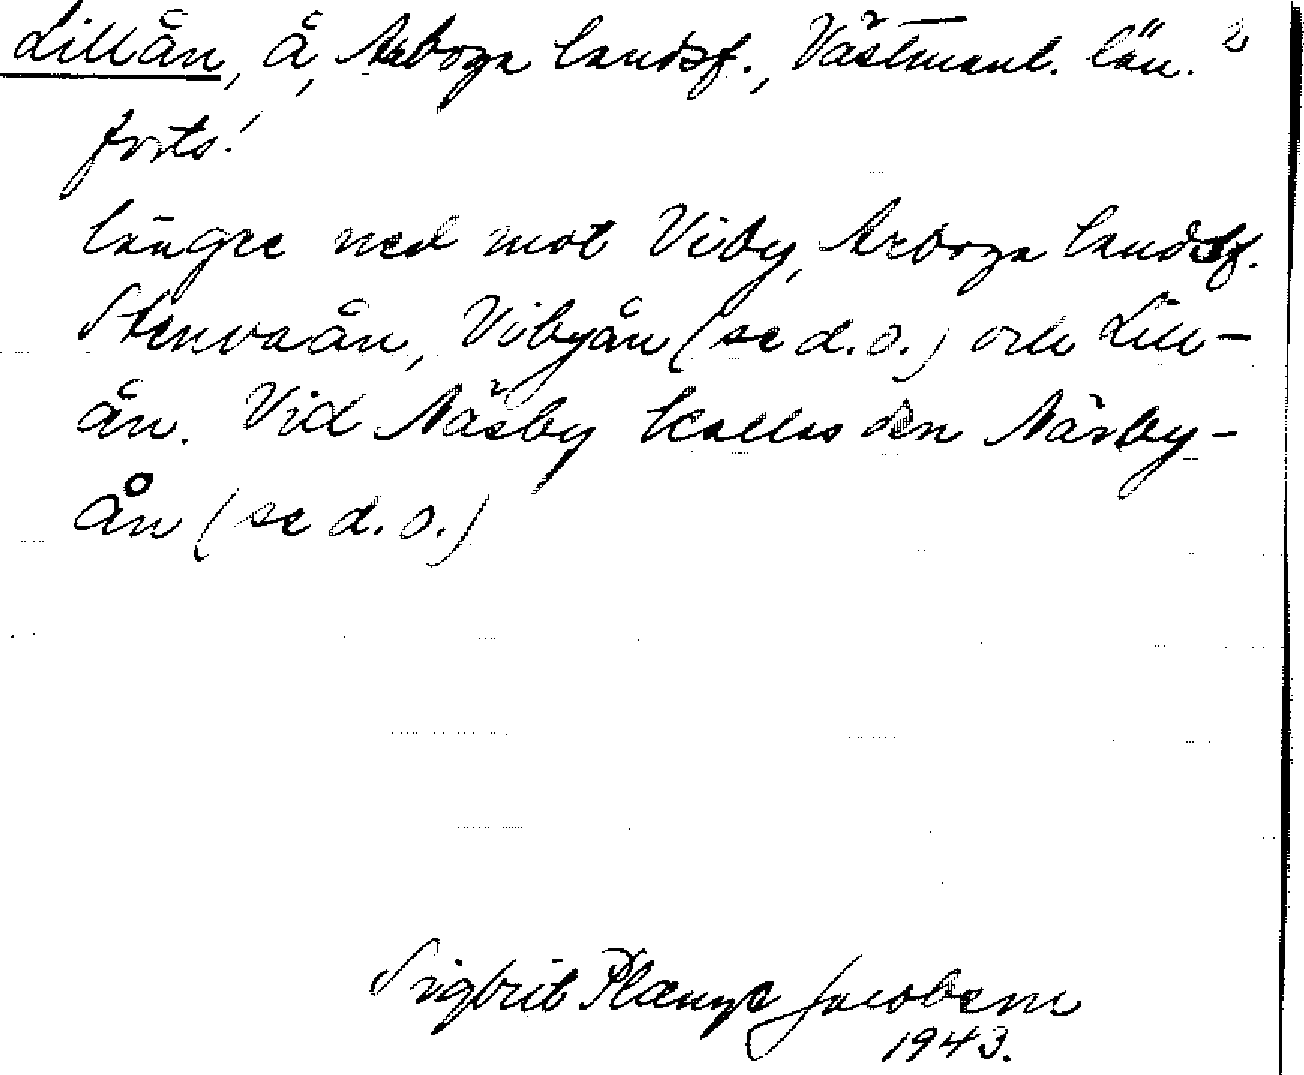 Lillån, å, Arboga landsf., Västmanl. län. 2
forts.
längre ned mot Viby, Arboga landsf.
Stenvaån, Vibyån (se d. o.) och Lill-
ån. Vid Näsby kallas den Näsby-
ån (se d. o.)
Sigbrit Plænge Jacobson
1943.